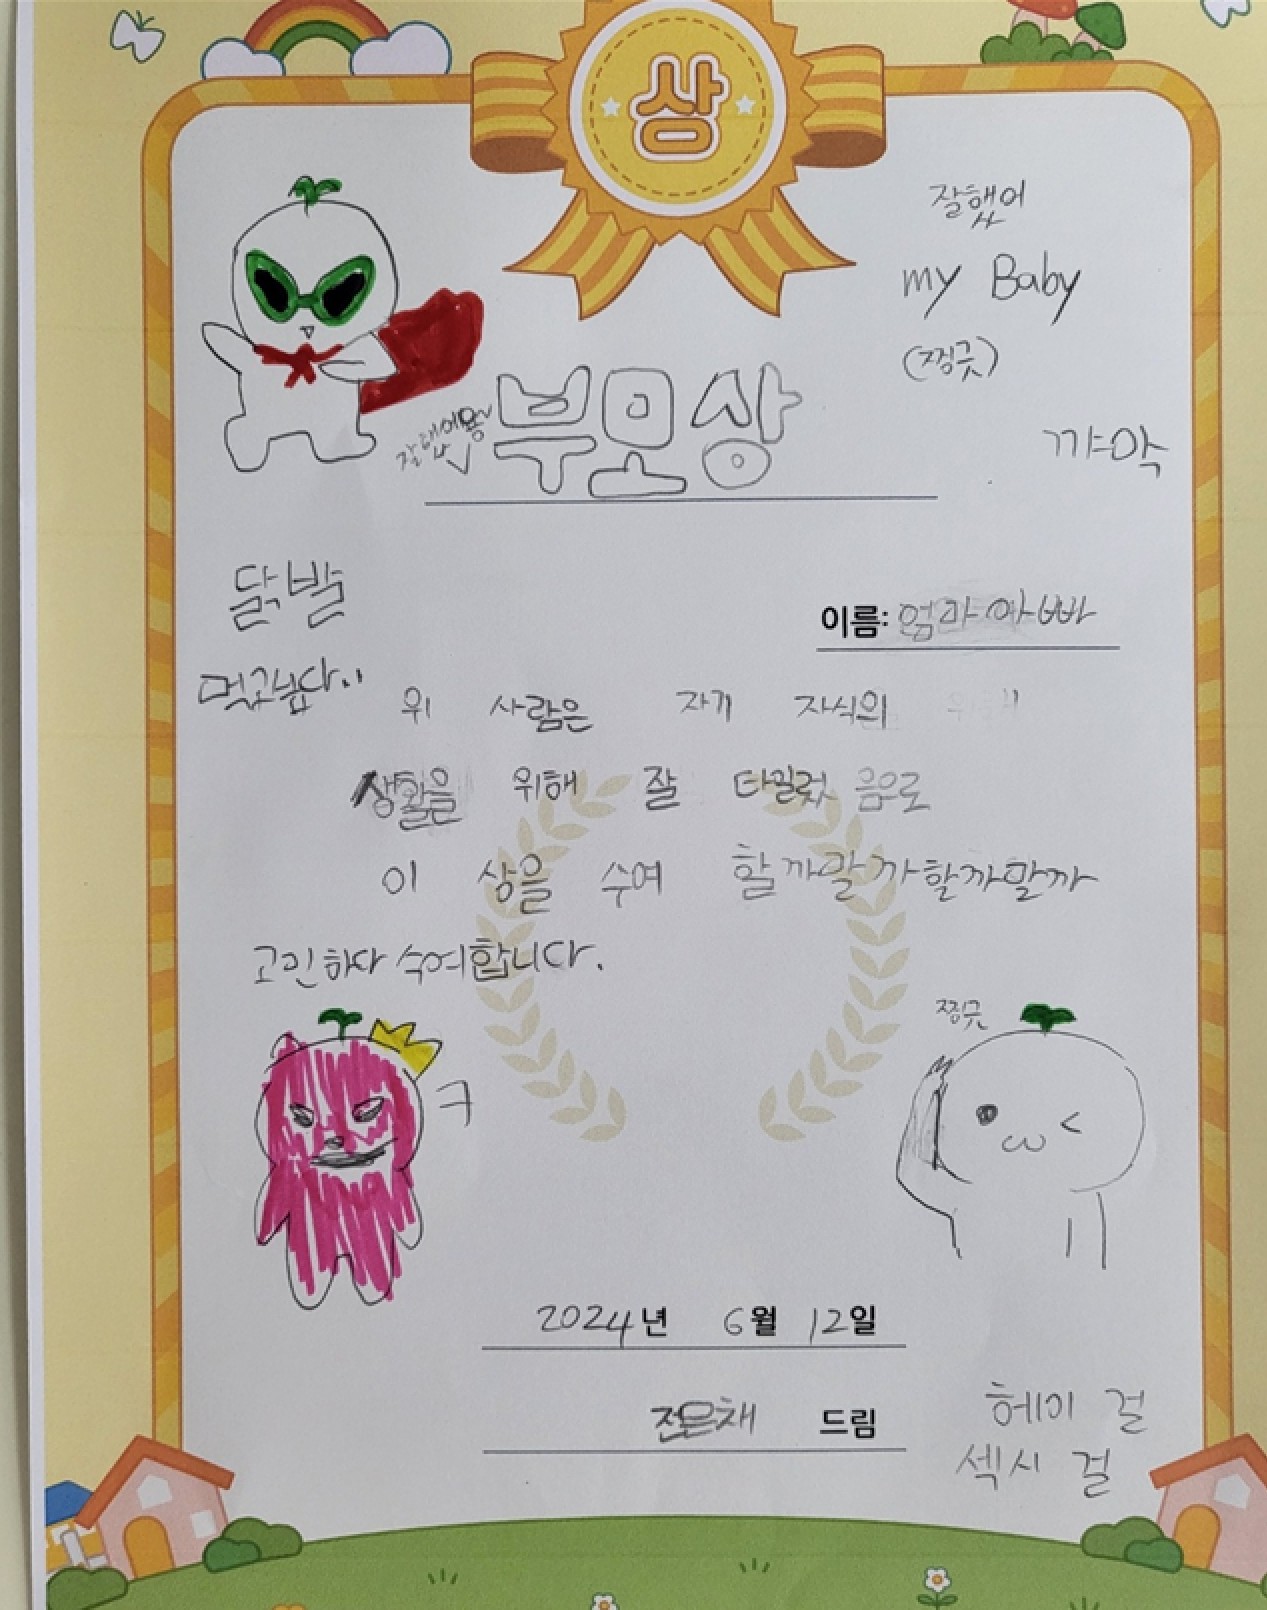 상
잘했어
my Baby
(찡긋)
잘했어용~
부모상
꺄악
닭발
먹고싶다..
이름: 엄마 아빠
위 사람은 자기 자식의
생활을 위해 잘 타일렀음으로
이 상을 수여 할까말까할까말까
고민하다 수여합니다.
찡긋
ㅋ
2024년 6월 12일
전은채 드림
헤이 걸
섹시 걸